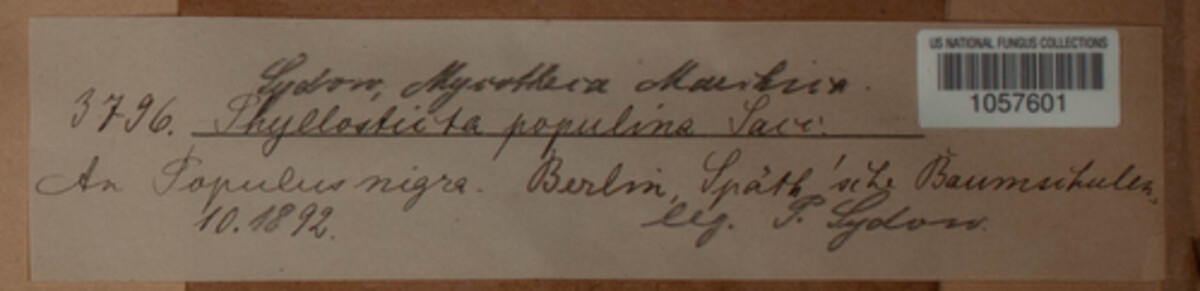 US NATIONAL FUNGUS COLLECTIONS
1057601
Sydow, Mycotheca Marchica.
3796. Phyllosticta populina Sacc.
An Populus nigra. Berlin, Späth'sche Baumschulen,
10.1892. leg. P. Sydow.